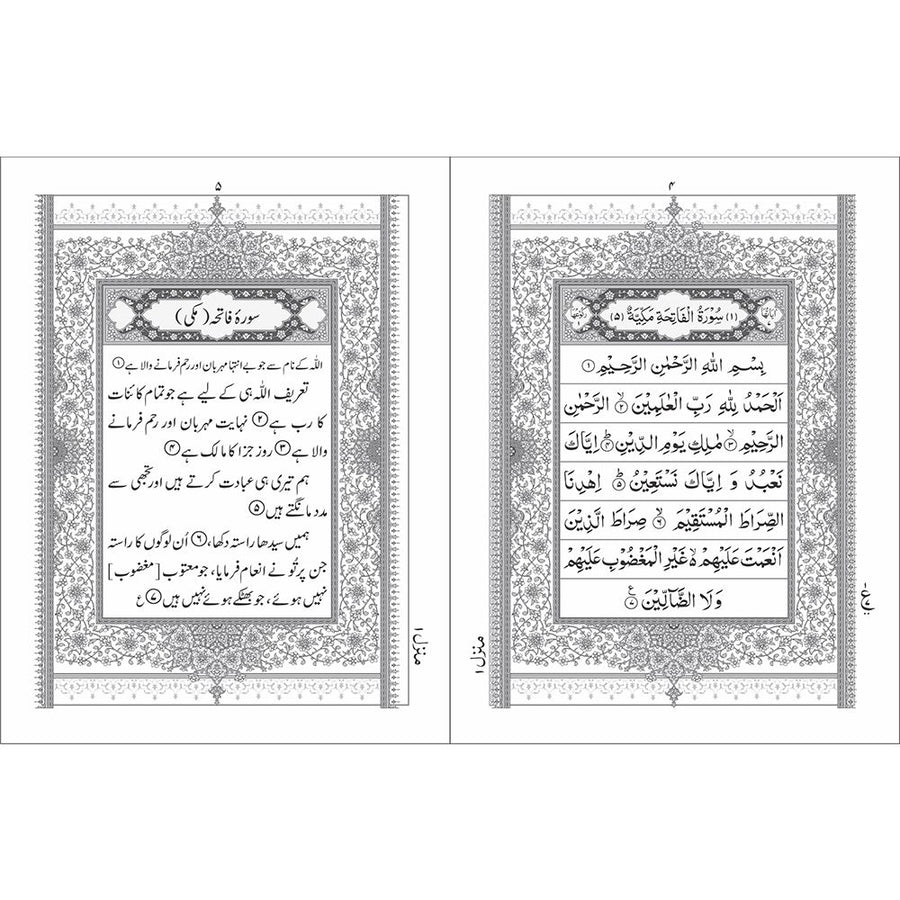 ۴
(۱) سُوْرَةُ الْفَاتِحَةِ مَكِّيَّةٌ (۵)
بِسْمِ اللّٰهِ الرَّحْمٰنِ الرَّحِيْمِ ۝۱
اَلْحَمْدُ لِلّٰهِ رَبِّ الْعٰلَمِيْنَ ۝۲ الرَّحْمٰنِ
الرَّحِيْمِ ۝۳ مٰلِكِ يَوْمِ الدِّيْنِ ۝۴ اِيَّاكَ
نَعْبُدُ وَ اِيَّاكَ نَسْتَعِيْنُ ۝۵ اِهْدِنَا
الصِّرَاطَ الْمُسْتَقِيْمَ ۝۶ صِرَاطَ الَّذِيْنَ
اَنْعَمْتَ عَلَيْهِمْ ۙ۬ غَيْرِ الْمَغْضُوْبِ عَلَيْهِمْ
وَلَا الضَّآلِّيْنَ ۝۷
منزل ۱
۵
سورۂ فاتحہ (مکی)
اللہ کے نام سے جو بے انتہا مہربان اور رحم فرمانے والا ہے ۝۱
تعریف اللہ ہی کے لیے ہے جو تمام کائنات
کا رب ہے ۝۲ نہایت مہربان اور رحم فرمانے
والا ہے ۝۳ روز جزا کا مالک ہے ۝۴
ہم تیری ہی عبادت کرتے ہیں اور تجھی سے
مدد مانگتے ہیں ۝۵
ہمیں سیدھا راستہ دکھا، ۝۶ اُن لوگوں کا راستہ
جن پر تُو نے انعام فرمایا، جو معتوب [مغضوب]
نہیں ہوئے، جو بھٹکے ہوئے نہیں ہیں ۝۷ ع
منزل ۱